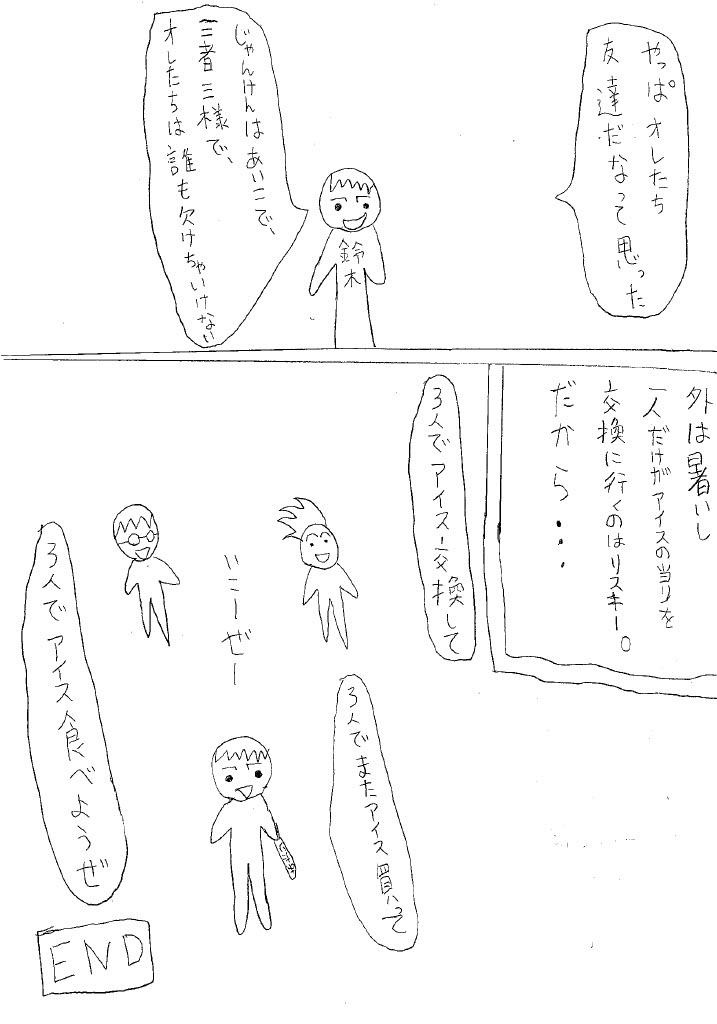 やっぱオレたち
友達だなって思った
じゃんけんはあいこで、
三者三様で、
オレたちは誰も欠けちゃいけない
鈴
木
外は暑いし
一人だけがアイスの当りを
交換に行くのはリスキー。
だから・・・
3人でアイス交換して
3人でまたアイス買って
いこーぜー
3人でアイス食べようぜ
END